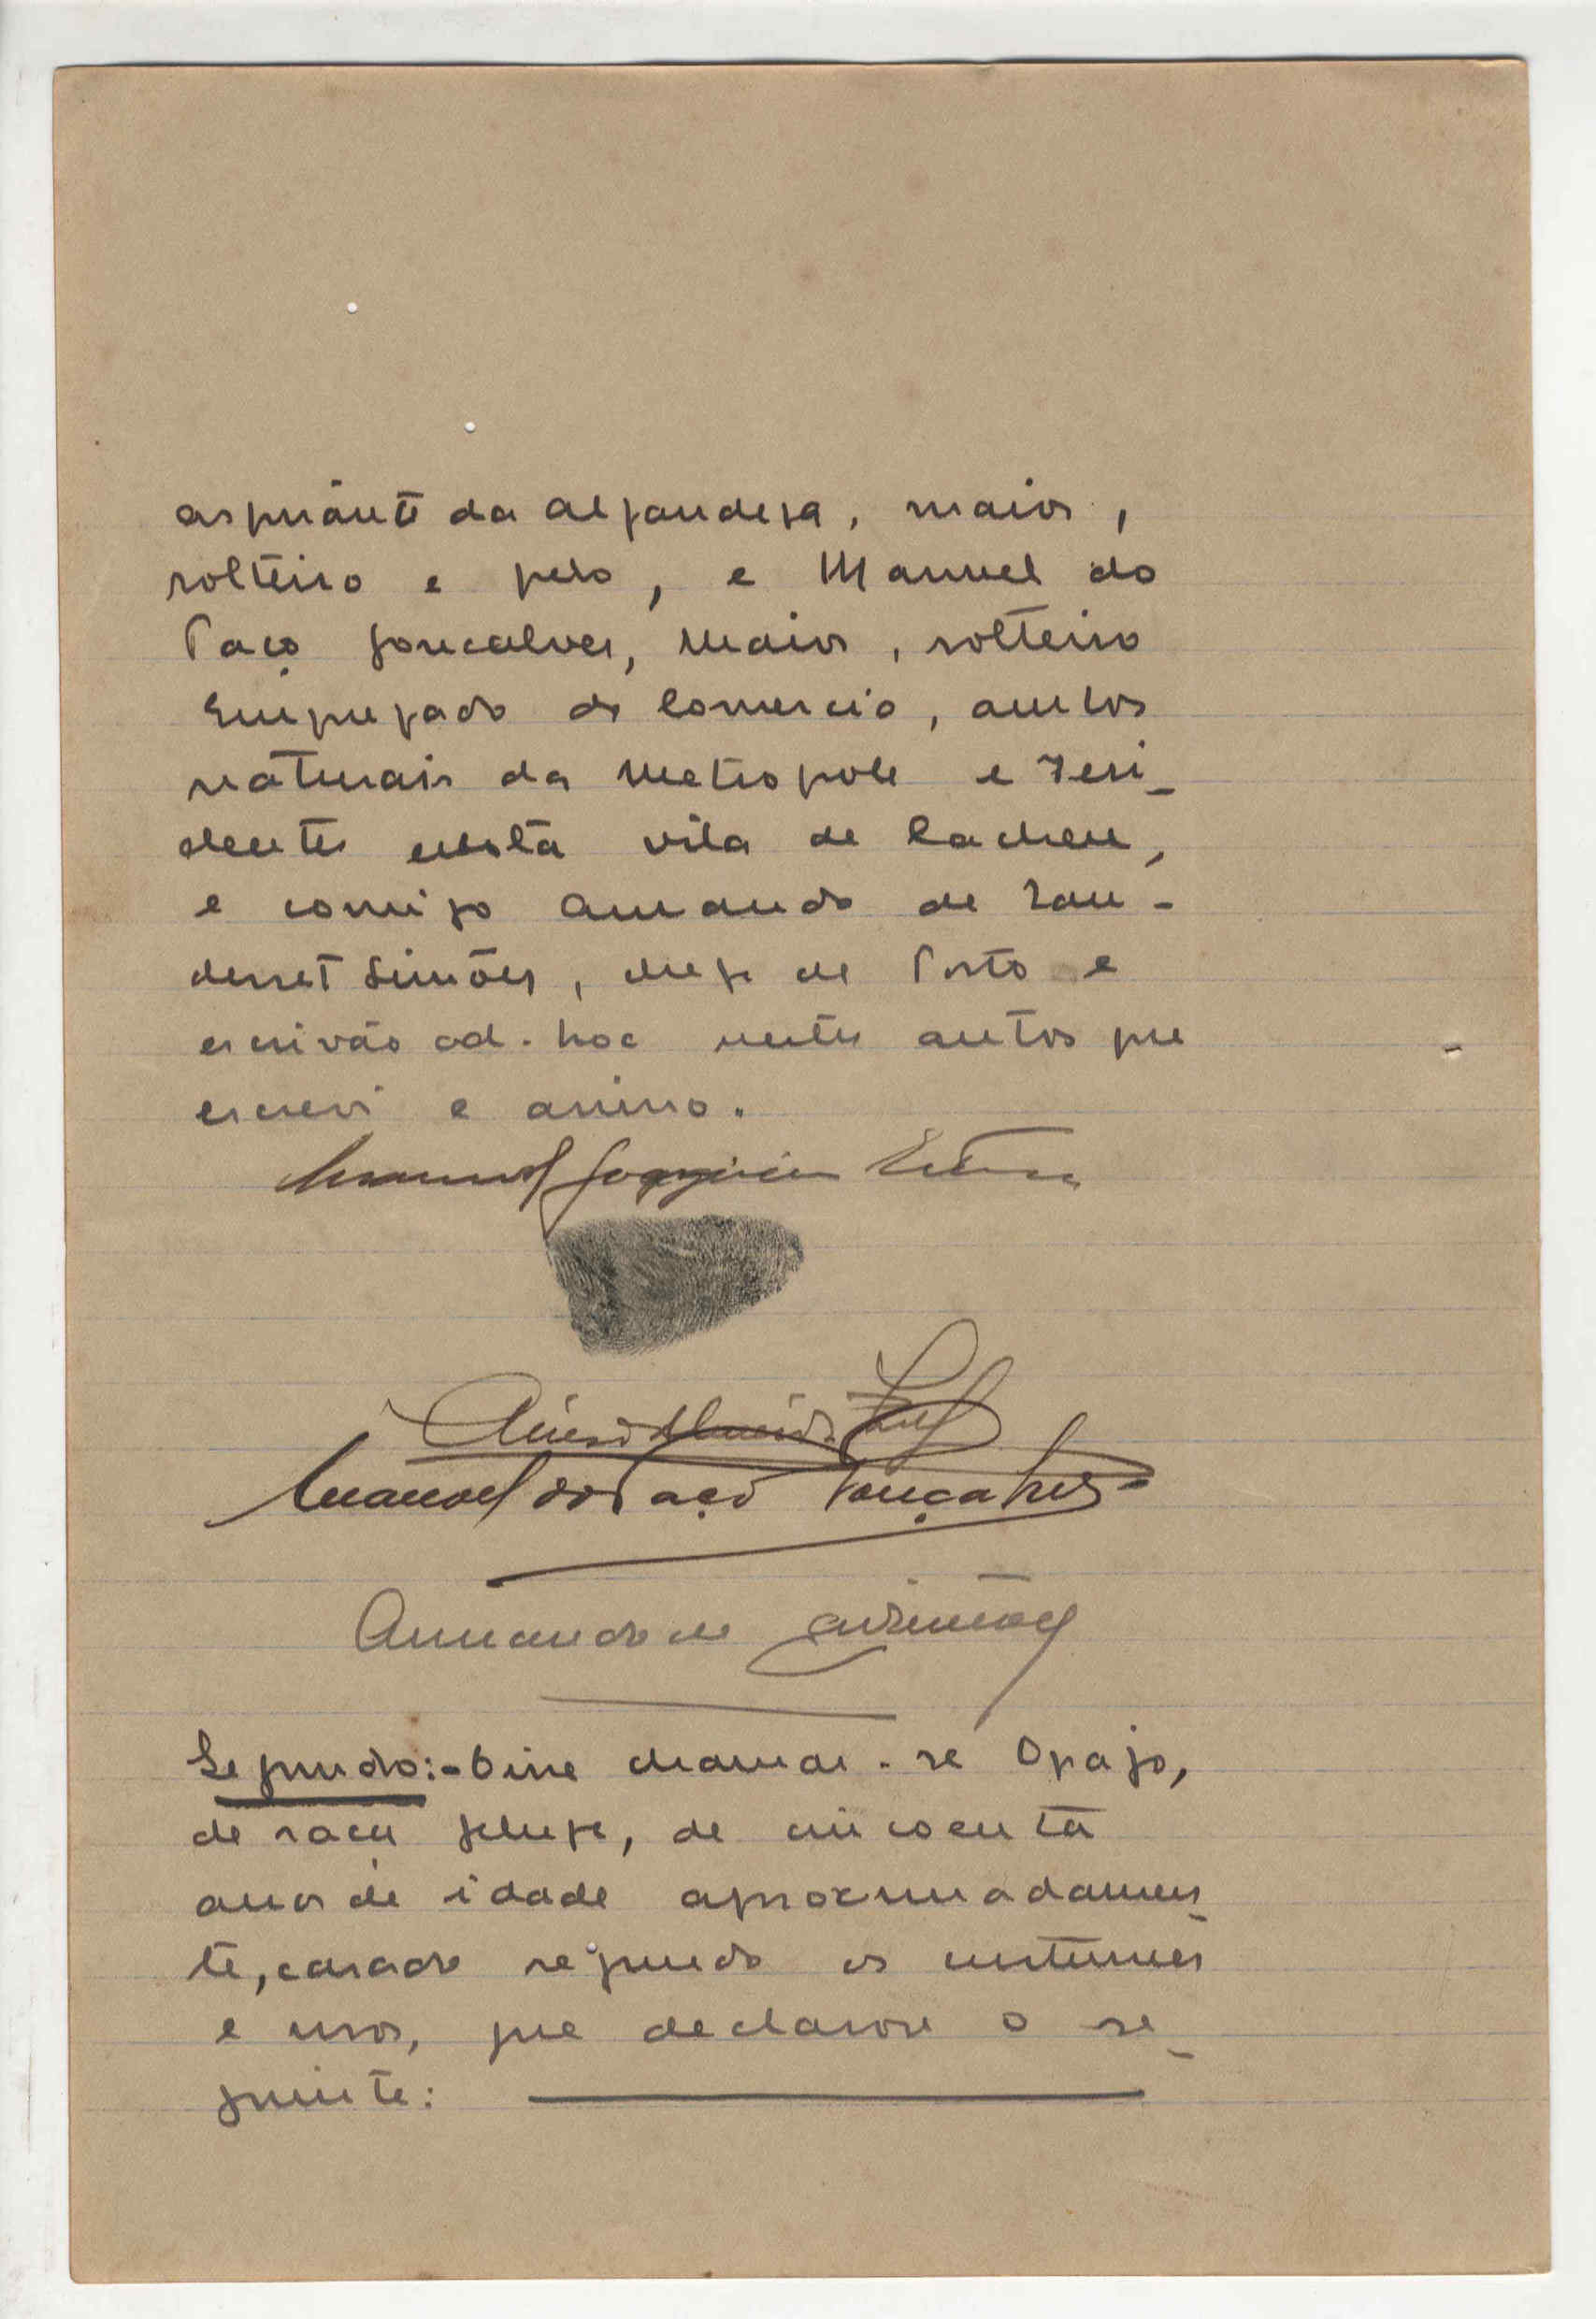 aspirante da Alfandega, maior,
solteiro e pelo, e Manuel do
Paço Goncalves, maior, solteiro
Empregado do Comercio, ambos
naturais da Metropole e resi-
dentes nesta vila de Cacheu,
e comigo Armando de
Simões, chefe de Posto e
escrivão ad-hoc nestes autos que
escrevi e assino.
Manuel Joaquim
Manoel do Paço Gonçalves
Armando de Simões
Segundo:-Disse chamar-se Opajo,
de raça felupe, de cincoenta
anos de idade aproximadamen-
te, casado segundo os costumes
e usos, que declarou o se-
guinte: